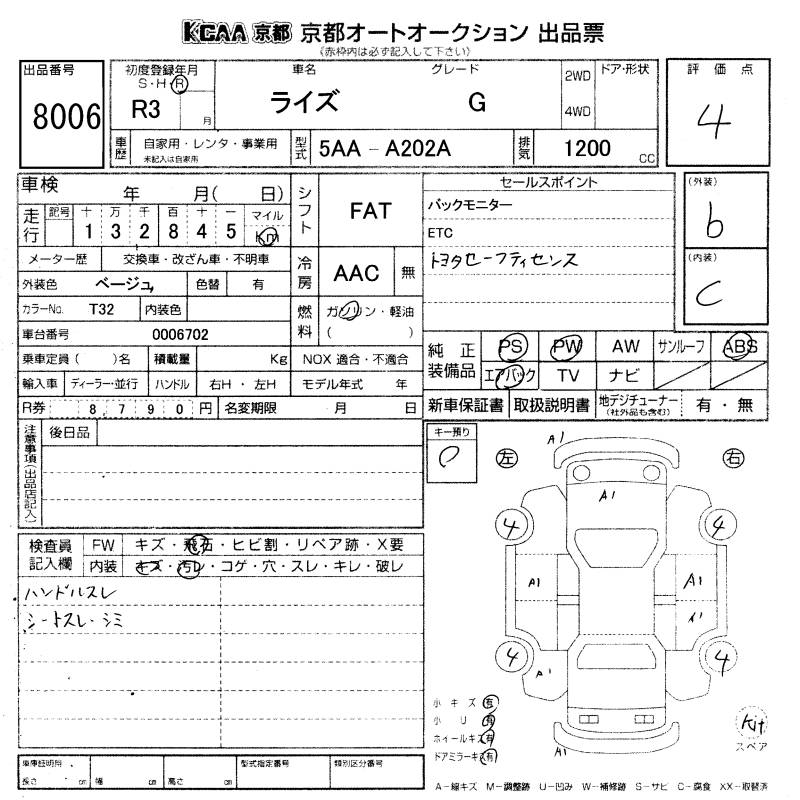 KCAA 京都 京都オートオークション 出品票
(赤枠内は必ず記入して下さい)
出品番号 8006
初度登録年月 S・H・R R3 月
車名 ライズ グレード G
2WD 4WD ドア・形状
評価点 4
車歴 自家用・レンタ・事業用 未記入は自家用
型式 5AA－A202A 排気 1200 CC
車検 年 月( 日)
走行 記号 十 万 千 百 十 一 マイル
1 3 2 8 4 5 Km
シフト FAT
メーター歴 交換車・改ざん車・不明車
冷房 AAC 無
外装色 ベージュ 色替 有
カラーNo. T32 内装色
燃料 ガソリン・軽油 ( )
車台番号 0006702
乗車定員 ( )名 積載量 Kg NOX 適合・不適合
輸入車 ディーラー・並行 ハンドル 右H・左H モデル年式 年
R券 8,790円 名変期限 月 日
セールスポイント
バックモニター
ETC
トヨタセーフティセンス
(外装) b
(内装) C
純正装備品 PS PW AW サンルーフ ABS
エアバック TV ナビ
新車保証書 取扱説明書 地デジチューナー (社外品も含む) 有・無
注意事項(出品店記入) 後日品
キー預り 0
左 右
A1
A1
4 4
A1 A1
A1
4 4
A1
A1
検査員記入欄 FW キズ・飛石・ヒビ割・リペア跡・X要
内装 キズ・汚レ・コゲ・穴・スレ・キレ・破レ
ハンドルスレ
シートスレ・シミ
小キズ 有
小U 有
ホイールキズ 有
ドアミラーキズ 有
Kit
スペア
車庫証明用 長さ cm 幅 cm 高さ cm
型式指定番号 類別区分番号
A－線キズ M－調整跡 U－凹み W－補修跡 S－サビ C－腐食 XX－取替済